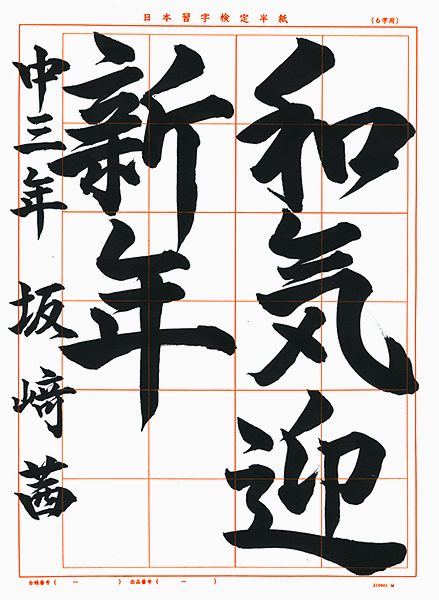 日本習字検定半紙
(6字用)
和気迎
新年
中三年 坂﨑茜
台帳番号( ー ) 出品番号( ー )